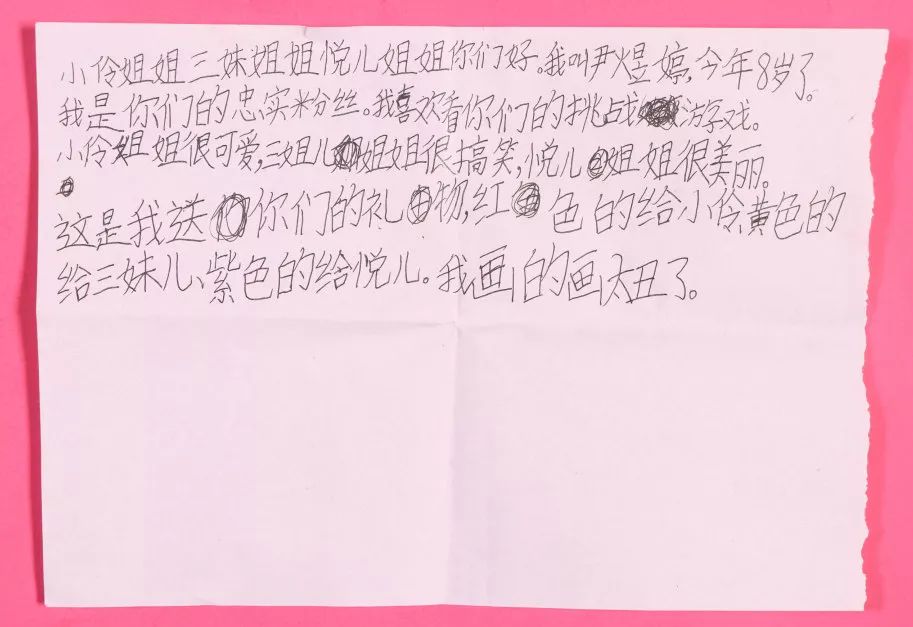 小伶姐姐三妹姐姐悦儿姐姐你们好。我叫尹煜婷,今年8岁了。
我是你们的忠实粉丝。我喜欢看你们的挑战游戏。
小伶姐姐很可爱,三姐儿姐姐很搞笑,悦儿姐姐很美丽。
这是我送你们的礼物,红色的给小伶,黄色的
给三妹儿、紫色的给悦儿。我画的画太丑了。